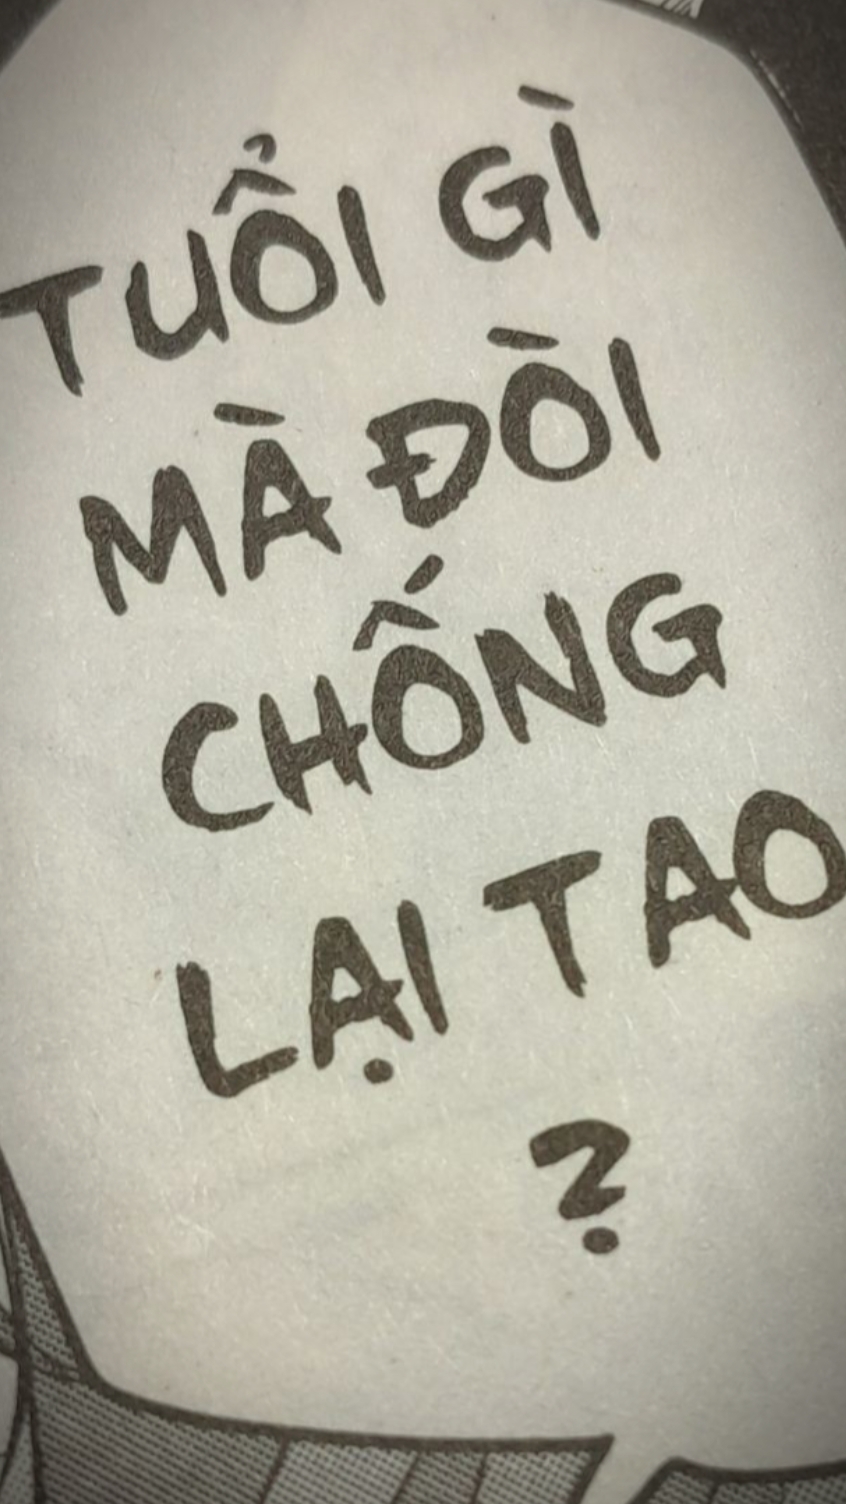 TUỔI GÌ
MÀ ĐÒI
CHỐNG
LẠI TAO
?